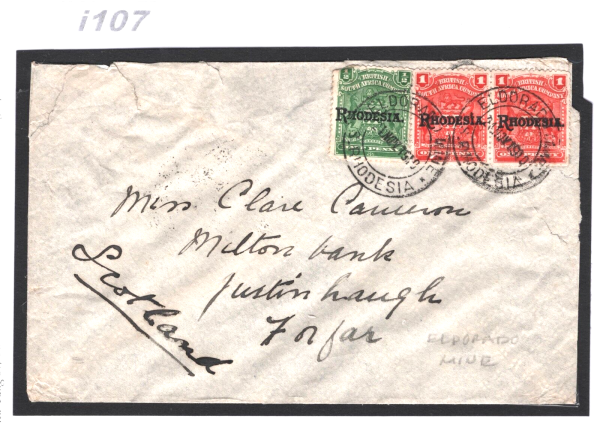 i107
½ BRITISH ½
SOUTH AFRICA COMPANY
RHODESIA.
PENNY
1 BRITISH 1
SOUTH AFRICA COMPANY
RHODESIA.
1 BRITISH 1
SOUTH AFRICA COMPANY
RHODESIA.
ELDORADO MINE
S. RHODESIA
ELDORADO MINE
S. RHODESIA
Miss Clare Cameron
Miltonbank
Justinhaugh
Forfar
Scotland
ELDORADO
MINE